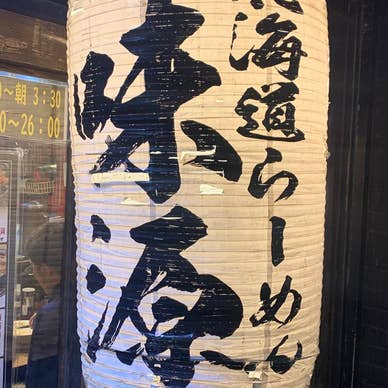 北海道らーめん
味源
〜朝 3:30
0〜26:00